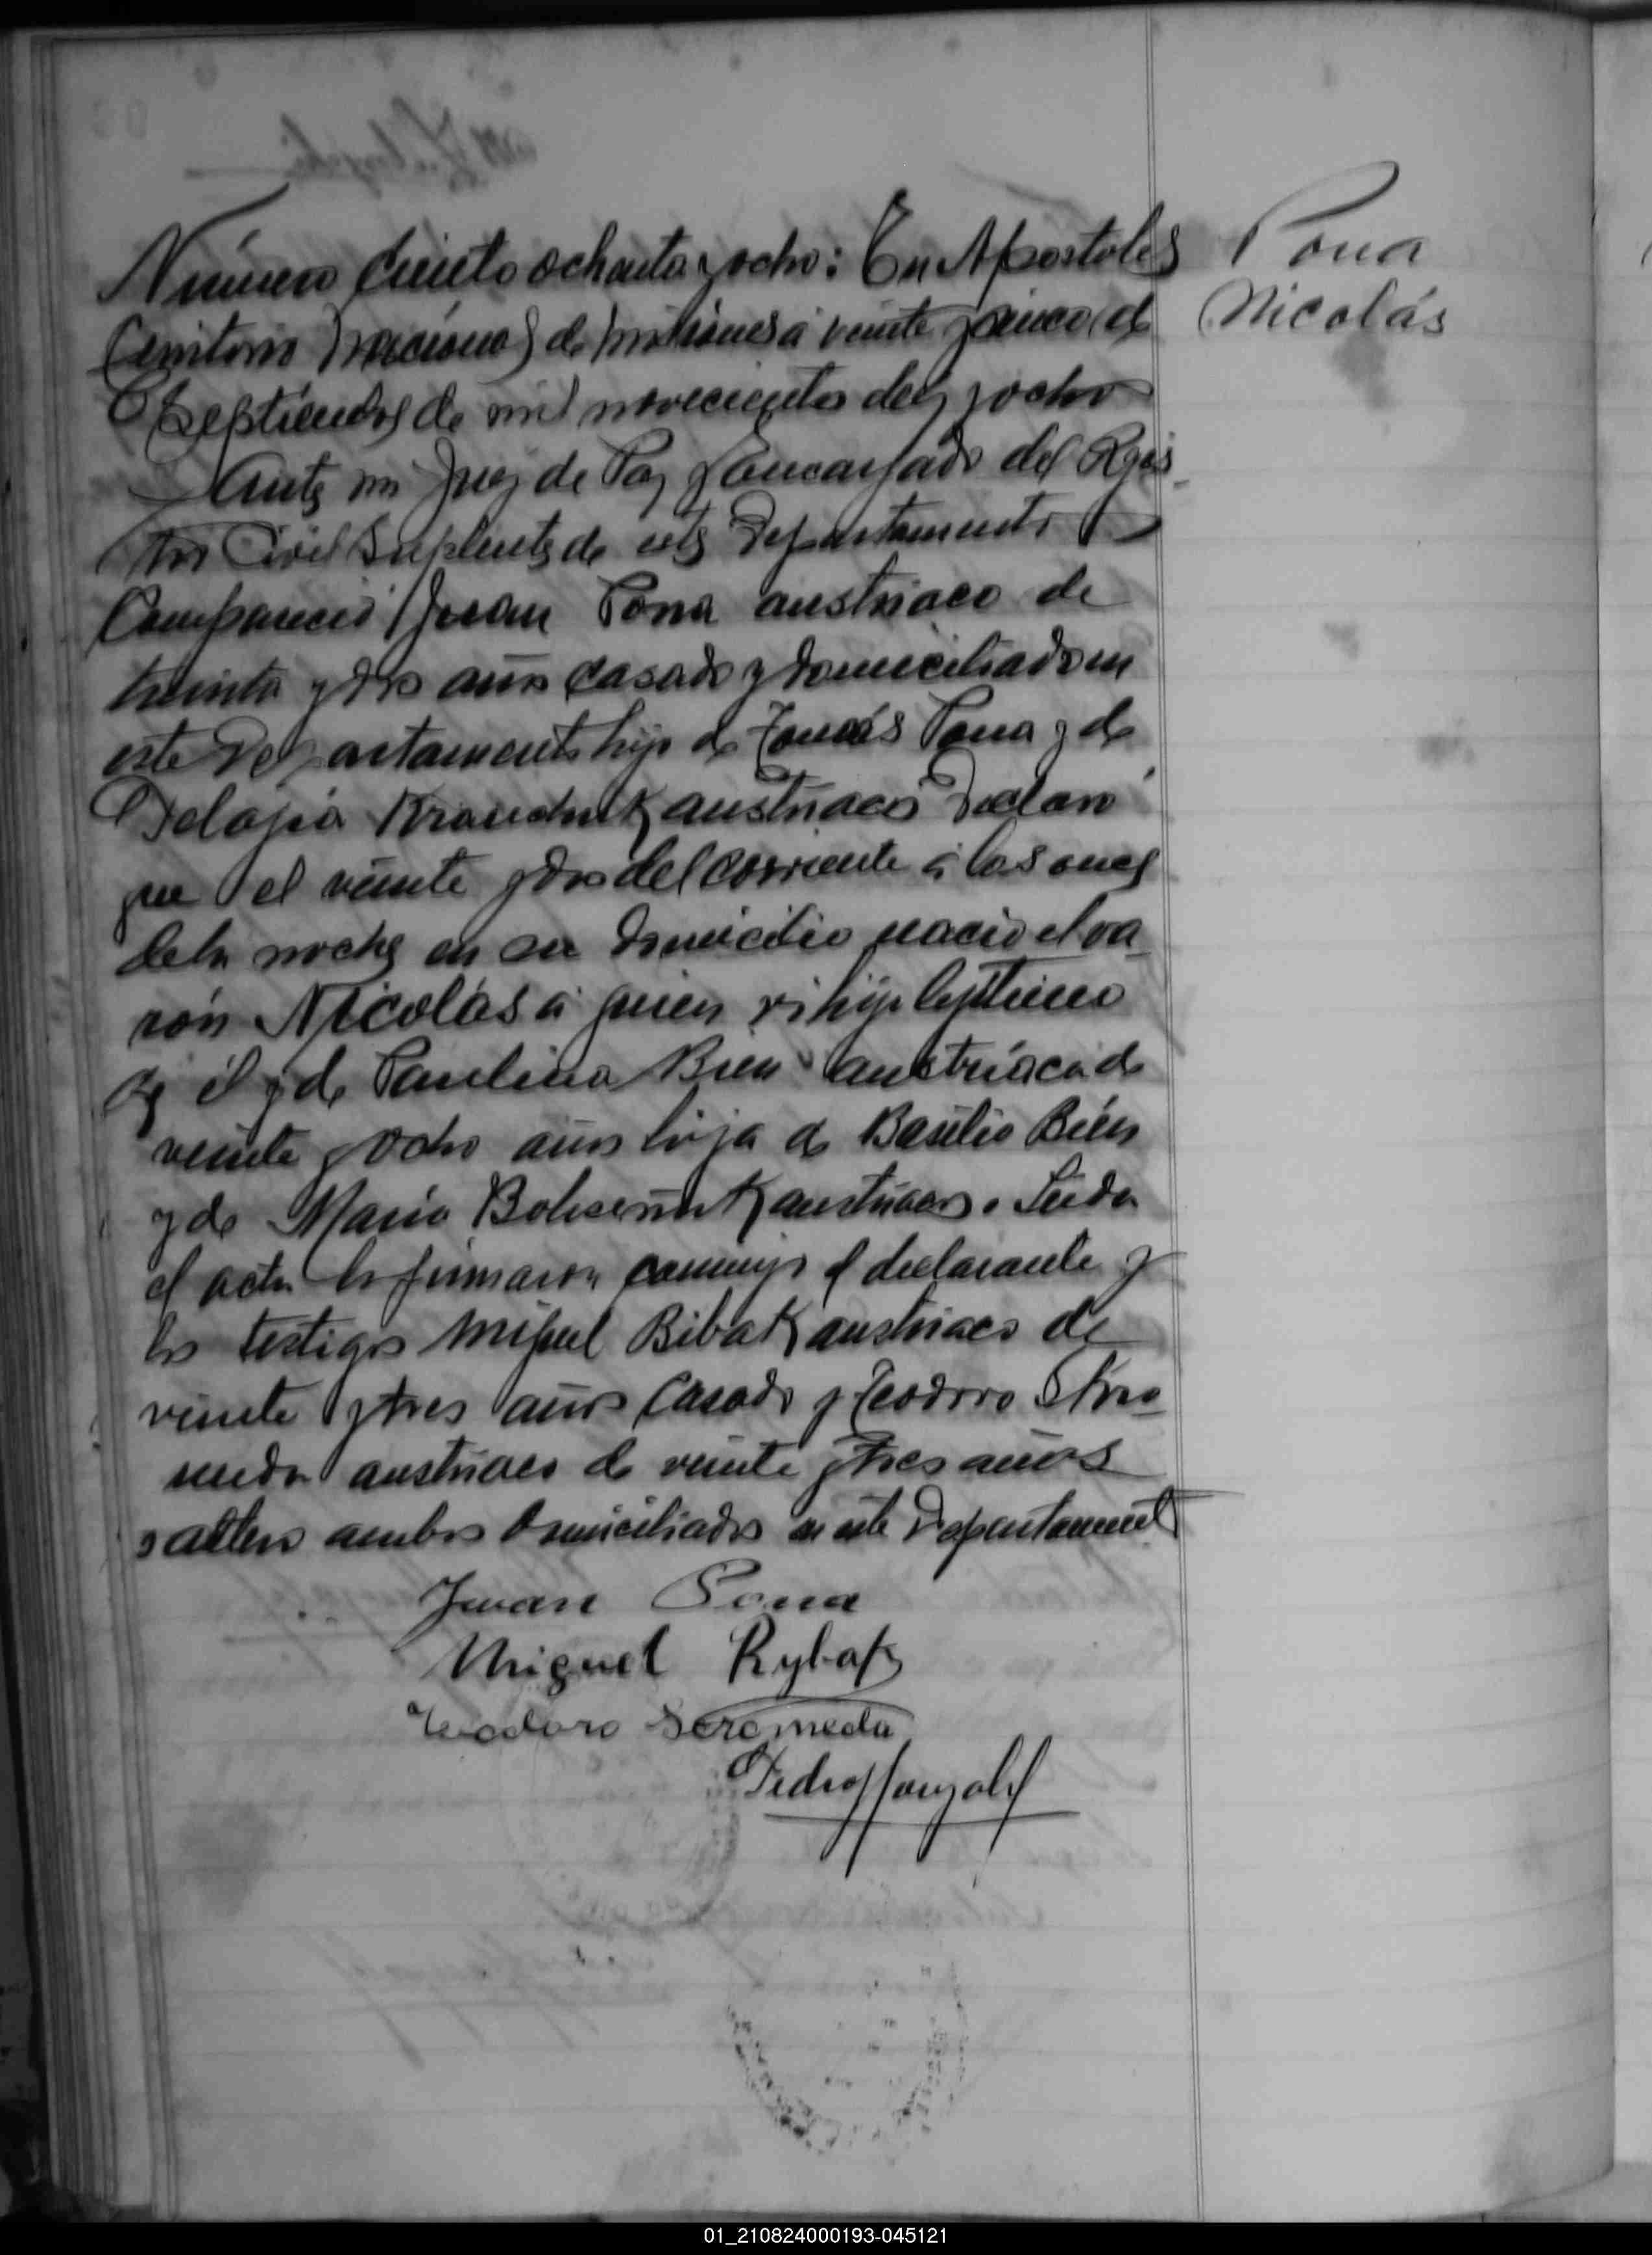 Número ciento ochenta y ocho: En Apostoles
Territorio Nacional de Misiones á veinte y cinco de
Septiembre de mil novecientos diez y ocho
Ante mi Juez de Paz y Encargado del Regis-
tro Civil Suplente de este Departamento
Compareció Juan Pona austriaco de
treinta y dos años casado y domiciliado en
este Departamento hijo de Tomás Pona y de
austriacos declaró
que el veinte y dos del corriente á las once
de la noche en su domicilio nació el va-
rón Nicolás á quien vi hijo legítimo
de él y de Paulina Bien austríaca de
veinte y ocho años hija de Basilio Bien
y de María austriacos. Leida
el acta la firmaron conmigo el declarante y
los testigos Miguel Ribak austriaco de
veinte y tres años casado y Teodoro
austriaco de veinte y tres años
soltero ambos domiciliados en este Departamento
Juan Pona
Miguel Rybak
Teodoro Seromeda
Pedro Gonzalez
Pona
Nicolás
01_210824000193-045121